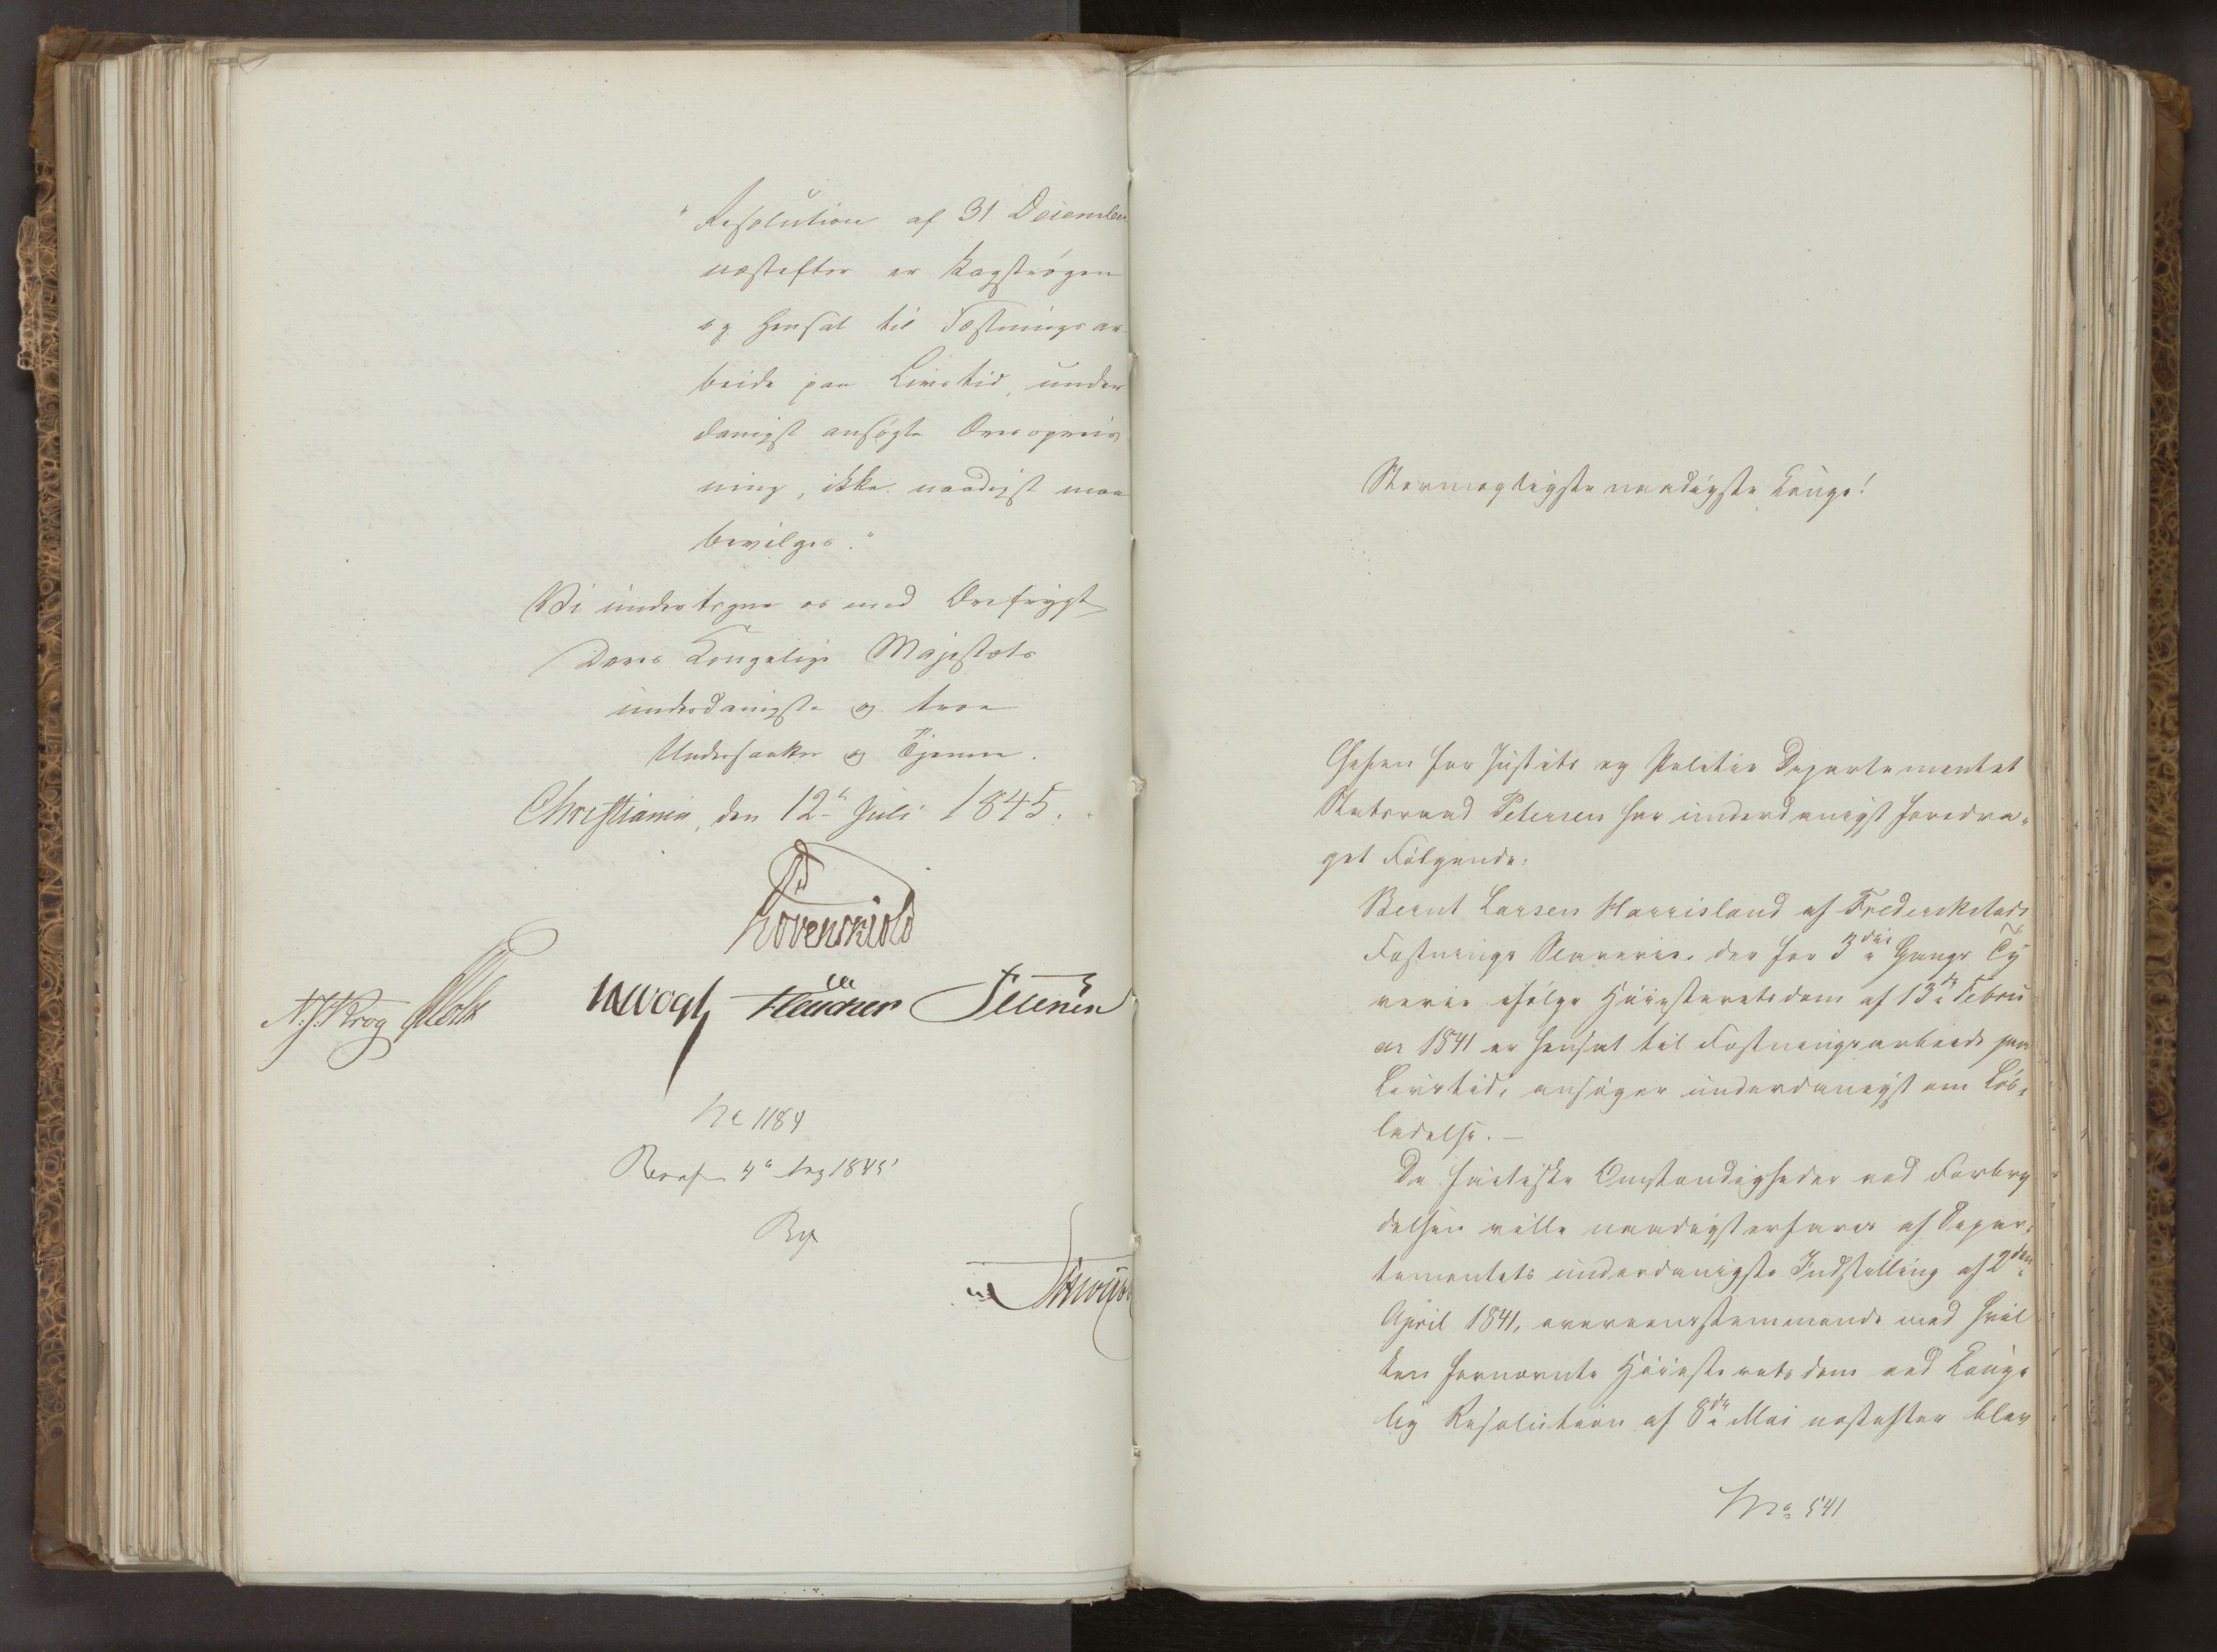 "Resolution af 31 December
næstefter er kagstrøgen
og hensat til Fæstningsar-
beide paa Livstid, under
danigst ansøgte Æresopreis
ning, ikke naadigst maa
bevilges."
Vi undertegne os med Ærefrygt
Deres Kongelige Majestæts
underdanigste og troe
Undersaatter og Tjenere.
Christiania, den 12te Juli 1845.
Løvenskiold
N. J. Krog Holst Vogt Petersen
No 1184
1845
Stormægtigste naadigste Konge!
Chefen for Justits og Politie Departementet
Statsraad Petersen har underdanigst foredra-
get Følgende:
Bernt Larsen Harrisland af Frederikstads
Fæstnings Slaverie, der for 3die Gangs Ty
verie ifølge Høiesteretsdom af 13de Febru
ar 1841 er hensat til Fæstningsarbeide paa
Livstid, ansøger underdanigst om Løs-
ladelse. —
De factiske Omstændigheder ved Forbry
delsen ville naadigst erfares af Depar-
tementets underdanigste Indstilling af 2den
April 1841, overeensstemmende med hvil
ken fornævnte Høiesteretsdom ved Konge
lig Resolution af 8de Mai næstefter blev
No 541